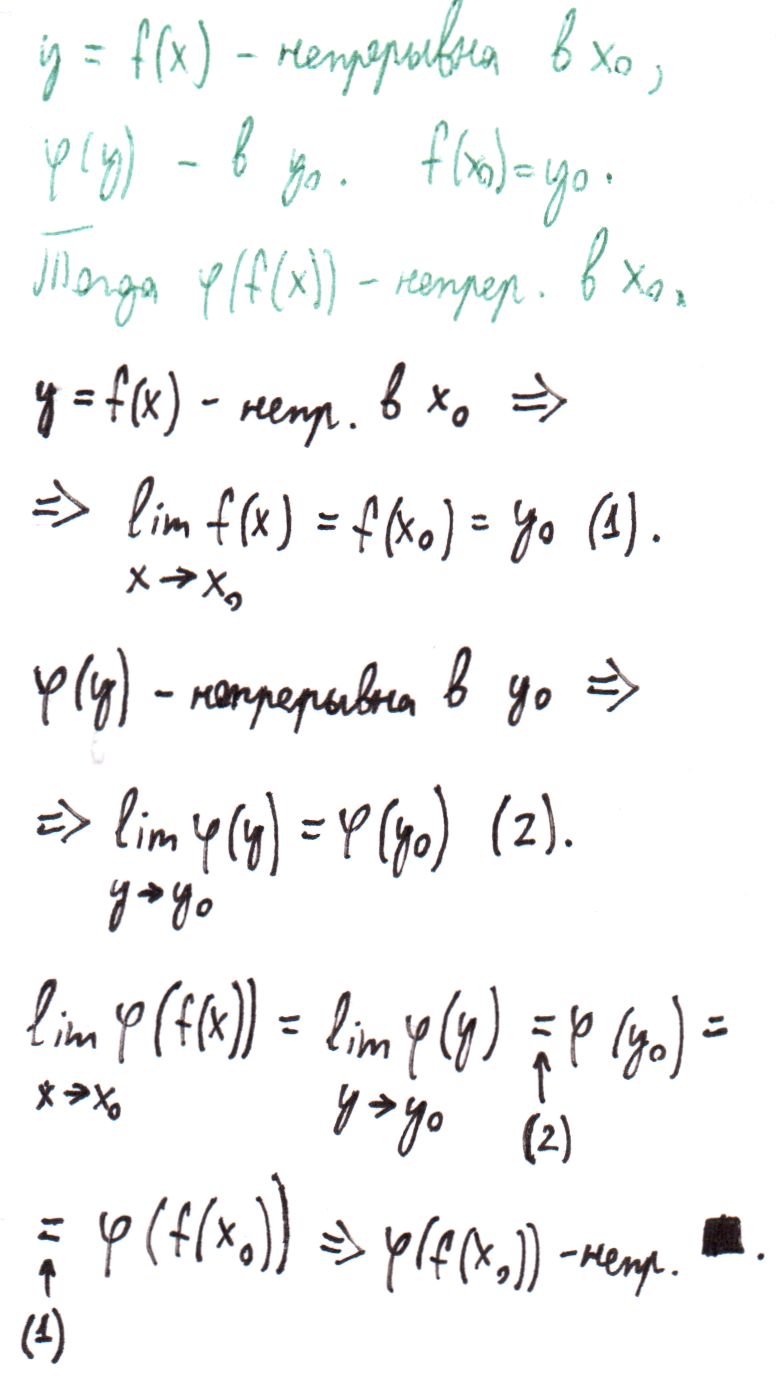 y = f(x) - непрерывна в x₀,
φ(y) - в y₀. f(x₀)=y₀.
Тогда φ(f(x)) - непрер. в x₀.
y = f(x) - непр. в x₀ ⇒
⇒ lim f(x) = f(x₀) = y₀ (1).
x→x₀
φ(y) - непрерывна в y₀ ⇒
⇒ lim φ(y) = φ(y₀) (2).
y→y₀
lim φ(f(x)) = lim φ(y) = φ(y₀) =
x→x₀ y→y₀ ↑
(2)
= φ(f(x₀)) ⇒ φ(f(x₀)) - непр. ■.
↑
(1)